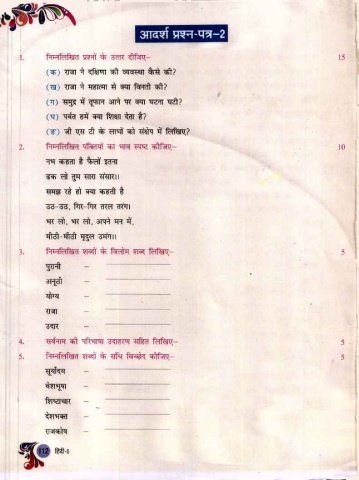 आदर्श प्रश्न-पत्र-2
1. निम्नलिखित प्रश्नों के उत्तर दीजिए- 15
(क) राजा ने दक्षिणा की व्यवस्था कैसे की?
(ख) राजा ने महात्मा से क्या विनती की?
(ग) समुद्र में तूफान आने पर क्या घटना घटी?
(घ) पर्वत हमें क्या शिक्षा देता है?
(ङ) जी एस टी के लाभों को संक्षेप में लिखिए?
2. निम्नलिखित पंक्तियों का भाव स्पष्ट कीजिए- 10
नभ कहता है फैलों इतना
ढक लो तुम सारा संसार।।
समझ रहे हो क्या कहती है
उठ-उठ, गिर-गिर तरल तरंग।
भर लो, भर लो, अपने मन में,
मीठी-मीठी मृदुल उमंग।।
3. निम्नलिखित शब्दों के विलोम शब्द लिखिए- 5
पुरानी –
अनूठी –
योग्य –
राजा –
उदार –
4. सर्वनाम की परिभाषा उदाहरण सहित लिखिए- 5
5. निम्नलिखित शब्दों के संधि विच्छेद कीजिए- 5
सूर्योदय –
वेशभूषा –
शिष्टाचार –
देशभक्त –
राजकोष –
112 हिंदी-5